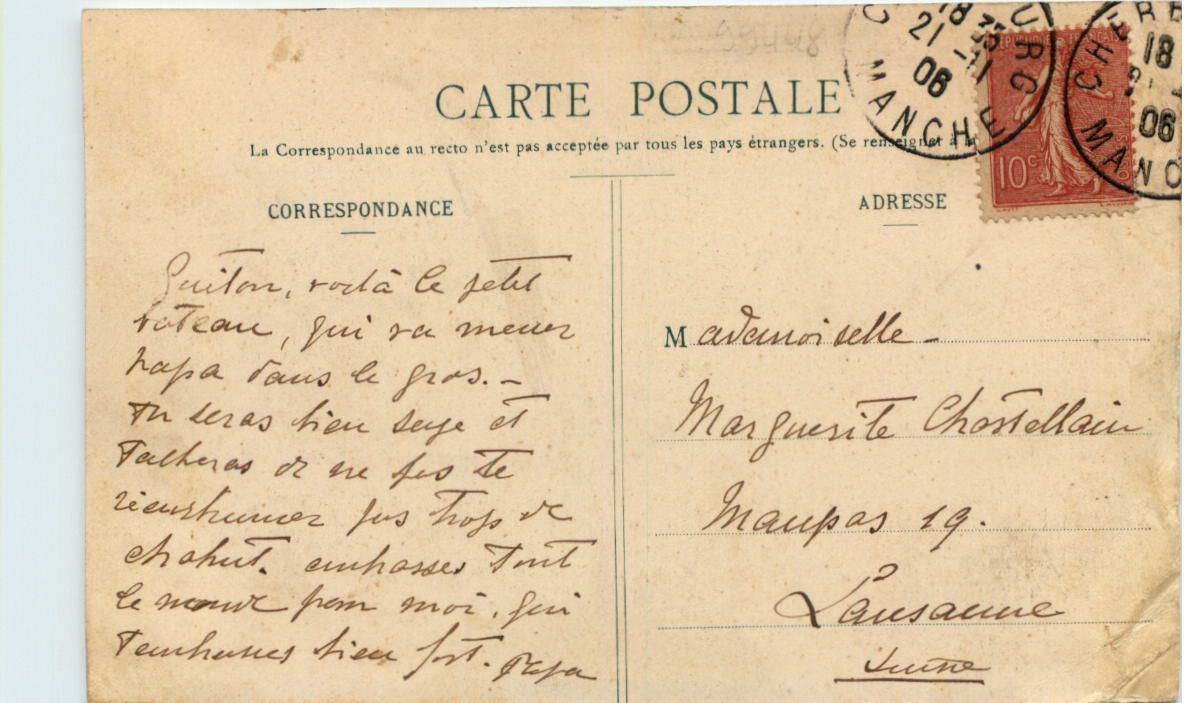 98448
CARTE POSTALE
La Correspondance au recto n'est pas acceptée par tous les pays étrangers. (Se renseignet à la
CORRESPONDANCE
Guiton, voilà le petit
bateau, qui va mener
papa dans le gros. -
Tu seras bien sage et
tacheras de ne pas te
réenrhumer pas trop de
chahut. embrasses tout
le monde pour moi, qui
t'embrasses bien fort. Papa
ADRESSE
Mademoiselle -
Marguerite Chastellain
Maupas 19.
Lausanne
Suisse
RÉPUBLIQUE FRANÇAISE
10c
18 35
21 -11
06
MANCHE
URG
CHERB
18
21
06
MANC